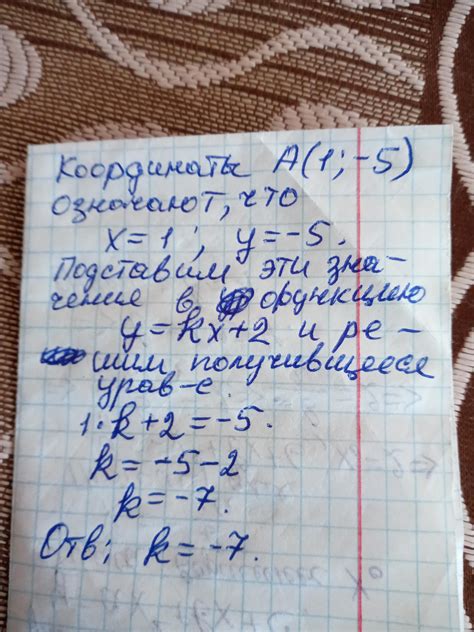 Координаты А(1;-5)
означают, что
x=1, y=-5.
Подставим эти зна-
чение в функцию
y=kx+2 и ре-
шим получившееся
урав-е.
1·k+2=-5.
k=-5-2
k=-7.
Отв; k=-7.